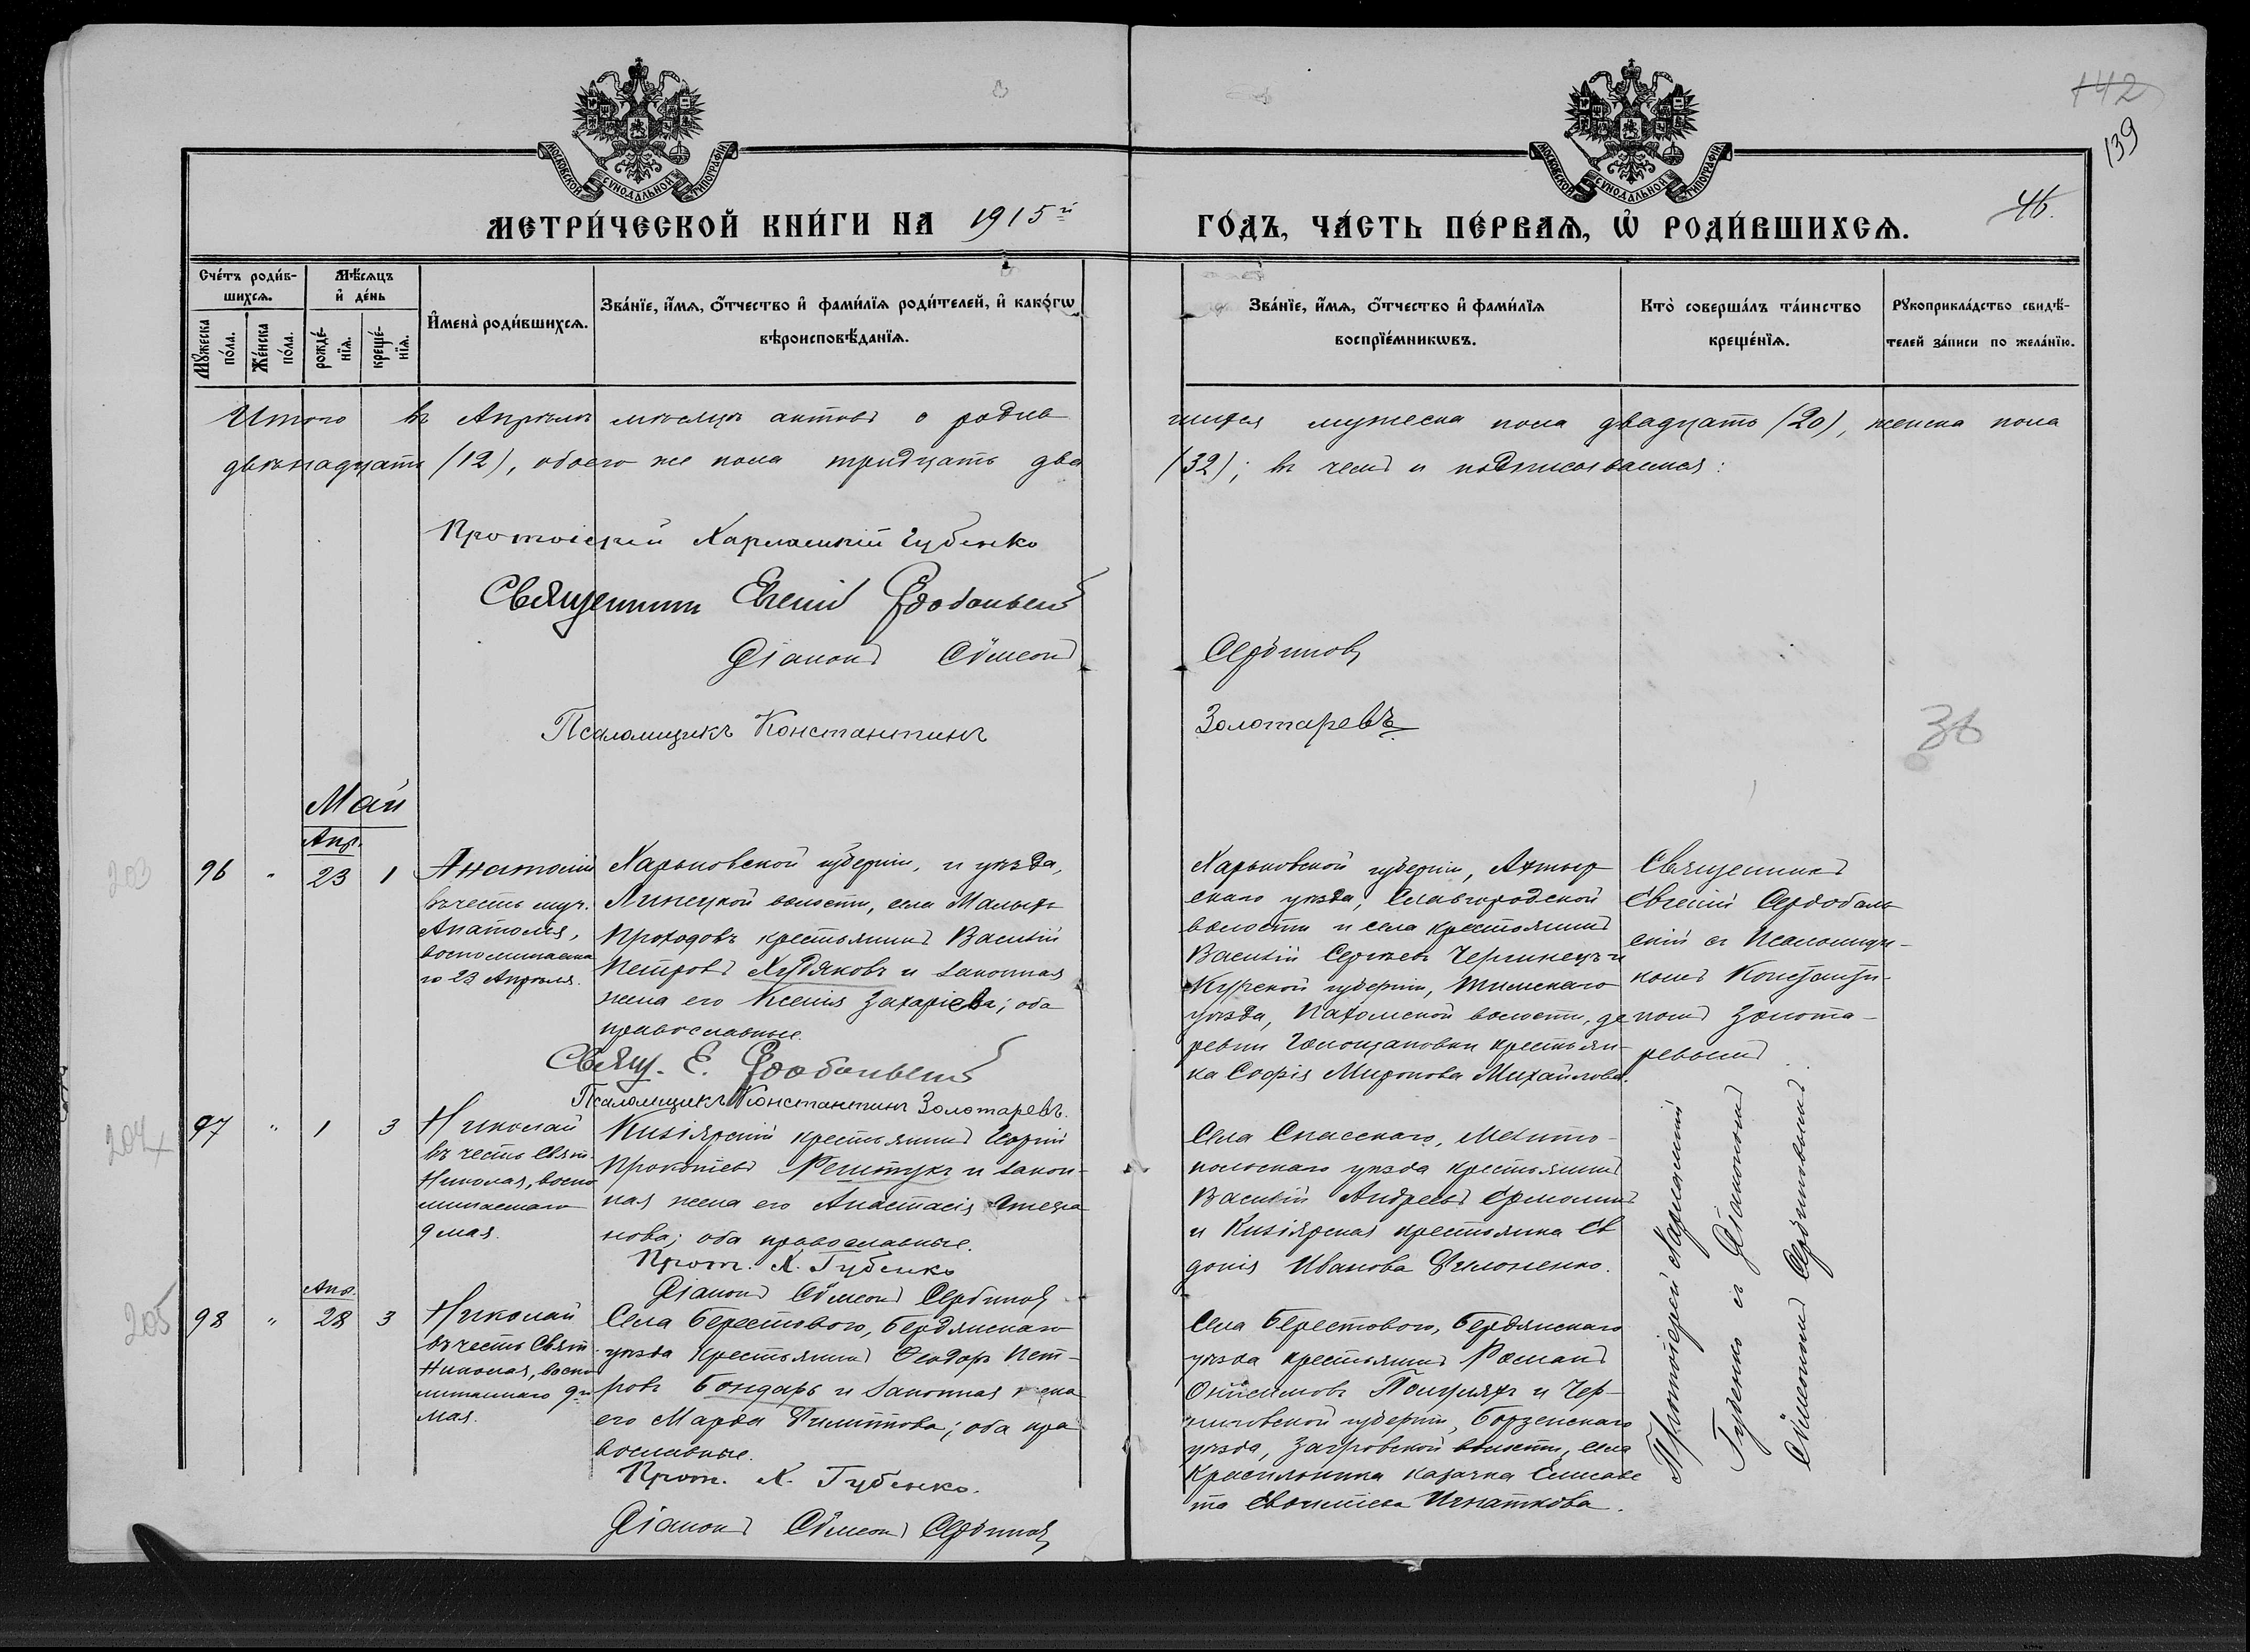 МОСКОВСКОЙ СѴНОДАЛЬНОЙ ТИПОГРАФІИ
МОСКОВСКОЙ СѴНОДАЛЬНОЙ ТИПОГРАФІИ
142
139
46.
МЕТРИ́ЧЕСКОЙ КНИ́ГИ НА 1915й
ГО́ДЪ, ЧА́СТЬ ПЕ́РВАѦ, Ѽ РОДИ́ВШИХСѦ.
Сче́тъ роди́в-
шихсѧ.
Мꙋ́жеска
по́ла.
Же́нска
по́ла.
Мѣ́сѧцъ
и҆ де́нь
рожде́-
нїѧ.
креще́-
нїѧ.
И҆мена̀ роди́вшихсѧ.
Зва́нїе, и҆́мѧ, ѻ҆́тчество и҆ фами́лїѧ роди́телей, и҆ како́гѡ
вѣроисповѣ́данїѧ.
Зва́нїе, и҆́мѧ, ѻ҆́тчество и҆ фами́лїѧ
воспрїе́мникѡвъ.
Кто̀ соверша́лъ та́инство
креще́нїѧ.
Рꙋкоприкла́дство свидѣ́-
телей за́писи по жела́нїю.
Итого въ Апрѣлѣ мѣсяцѣ актовъ о родив
шихся мужеска пола двадцать (20), женска пола
двѣнадцать (12), обоего же пола тридцать два
(32); въ чемъ и подписываемся:
Протоіерей Харлампій Губенко
Священникъ Евгеній Сердобольскій
Діаконъ Сѵмеонъ
Сербиновъ
Псаломщикъ Константинъ
Золотаревъ
36
Май
Апр.
203
96 " 23 1
Анатолій
въ честь муч.
Анатолія,
воспоминаема
го 23 Апрѣля.
Харьковской губерніи, и уѣзда,
Липецкой волости, села Малыхъ
Проходовъ крестьянинъ Василій
Петровъ Худяковъ и законная
жена его Ксенія Захаріева; оба
православные.
Свящ. Е. Сердобольскій
Псаломщикъ Константинъ Золотаревъ.
Харьковской губерніи, Ахтыр
скаго уѣзда, Славгородской
волости и села крестьянинъ
Василій Сергѣевъ и
Курской губерніи, Тимскаго
уѣзда, волости, де
ревни крестьян-
ка Софія Миронова Михайлова.
Священникъ
Евгеній Сердоболь
скій съ Псаломщи-
комъ Константи-
номъ Золота-
ревымъ
204
97 " 1 3
Николай
въ честь Свят.
Николая, воспо
минаемаго
9 мая.
Кизіярскій крестьянинъ Георгій
Прокопіевъ Решетукъ и закон-
ная жена его Анастасія Стефа
нова; оба православные.
Прот. Х. Губенко
Діаконъ Сѵмеонъ Сербиновъ
Села Спасскаго, Мелито-
польскаго уѣзда крестьянинъ
Василій Андреевъ Ермолинъ
и Кизіярская крестьянка Ев
докія Иванова Филоненко.
Протоіерей Харлампій
Губенко съ Діакономъ
Сѵмеономъ Сербиновымъ
Апр.
205
98 " 28 3
Николай
въ честь Свят.
Николая, воспо
минаемаго 9го
мая.
Села Берестового, Бердянскаго
уѣзда крестьянинъ Ѳеодоръ Пет-
ровъ Бондарь и законная жена
его Марѳа Филиппова; оба пра
вославные.
Прот. Х. Губенко.
Діаконъ Сѵмеонъ Сербиновъ
Села Берестового, Бердянскаго
уѣзда крестьянинъ Романъ
Онисимовъ и Чер-
ниговской губерніи, Борзенскаго
уѣзда, волости, села
казачка Елисаве
та Игнаткова.